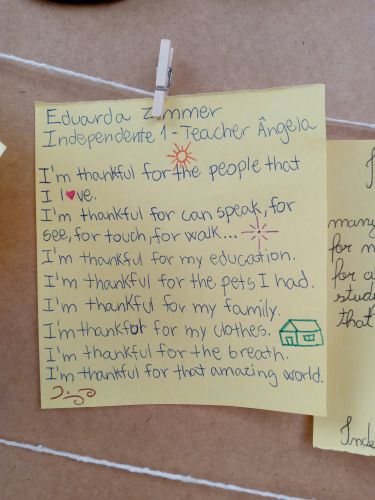 Eduarda Zimmer
Independente 1 - Teacher Ângela
I'm thankful for the people that
I love.
I'm thankful for can speak, for
see, for touch, for walk...
I'm thankful for my education.
I'm thankful for the pets I had.
I'm thankful for my family.
I'm thankful for my clothes.
I'm thankful for the breath.
I'm thankful for that amazing world.
many
for
for a
stude
that
Inde